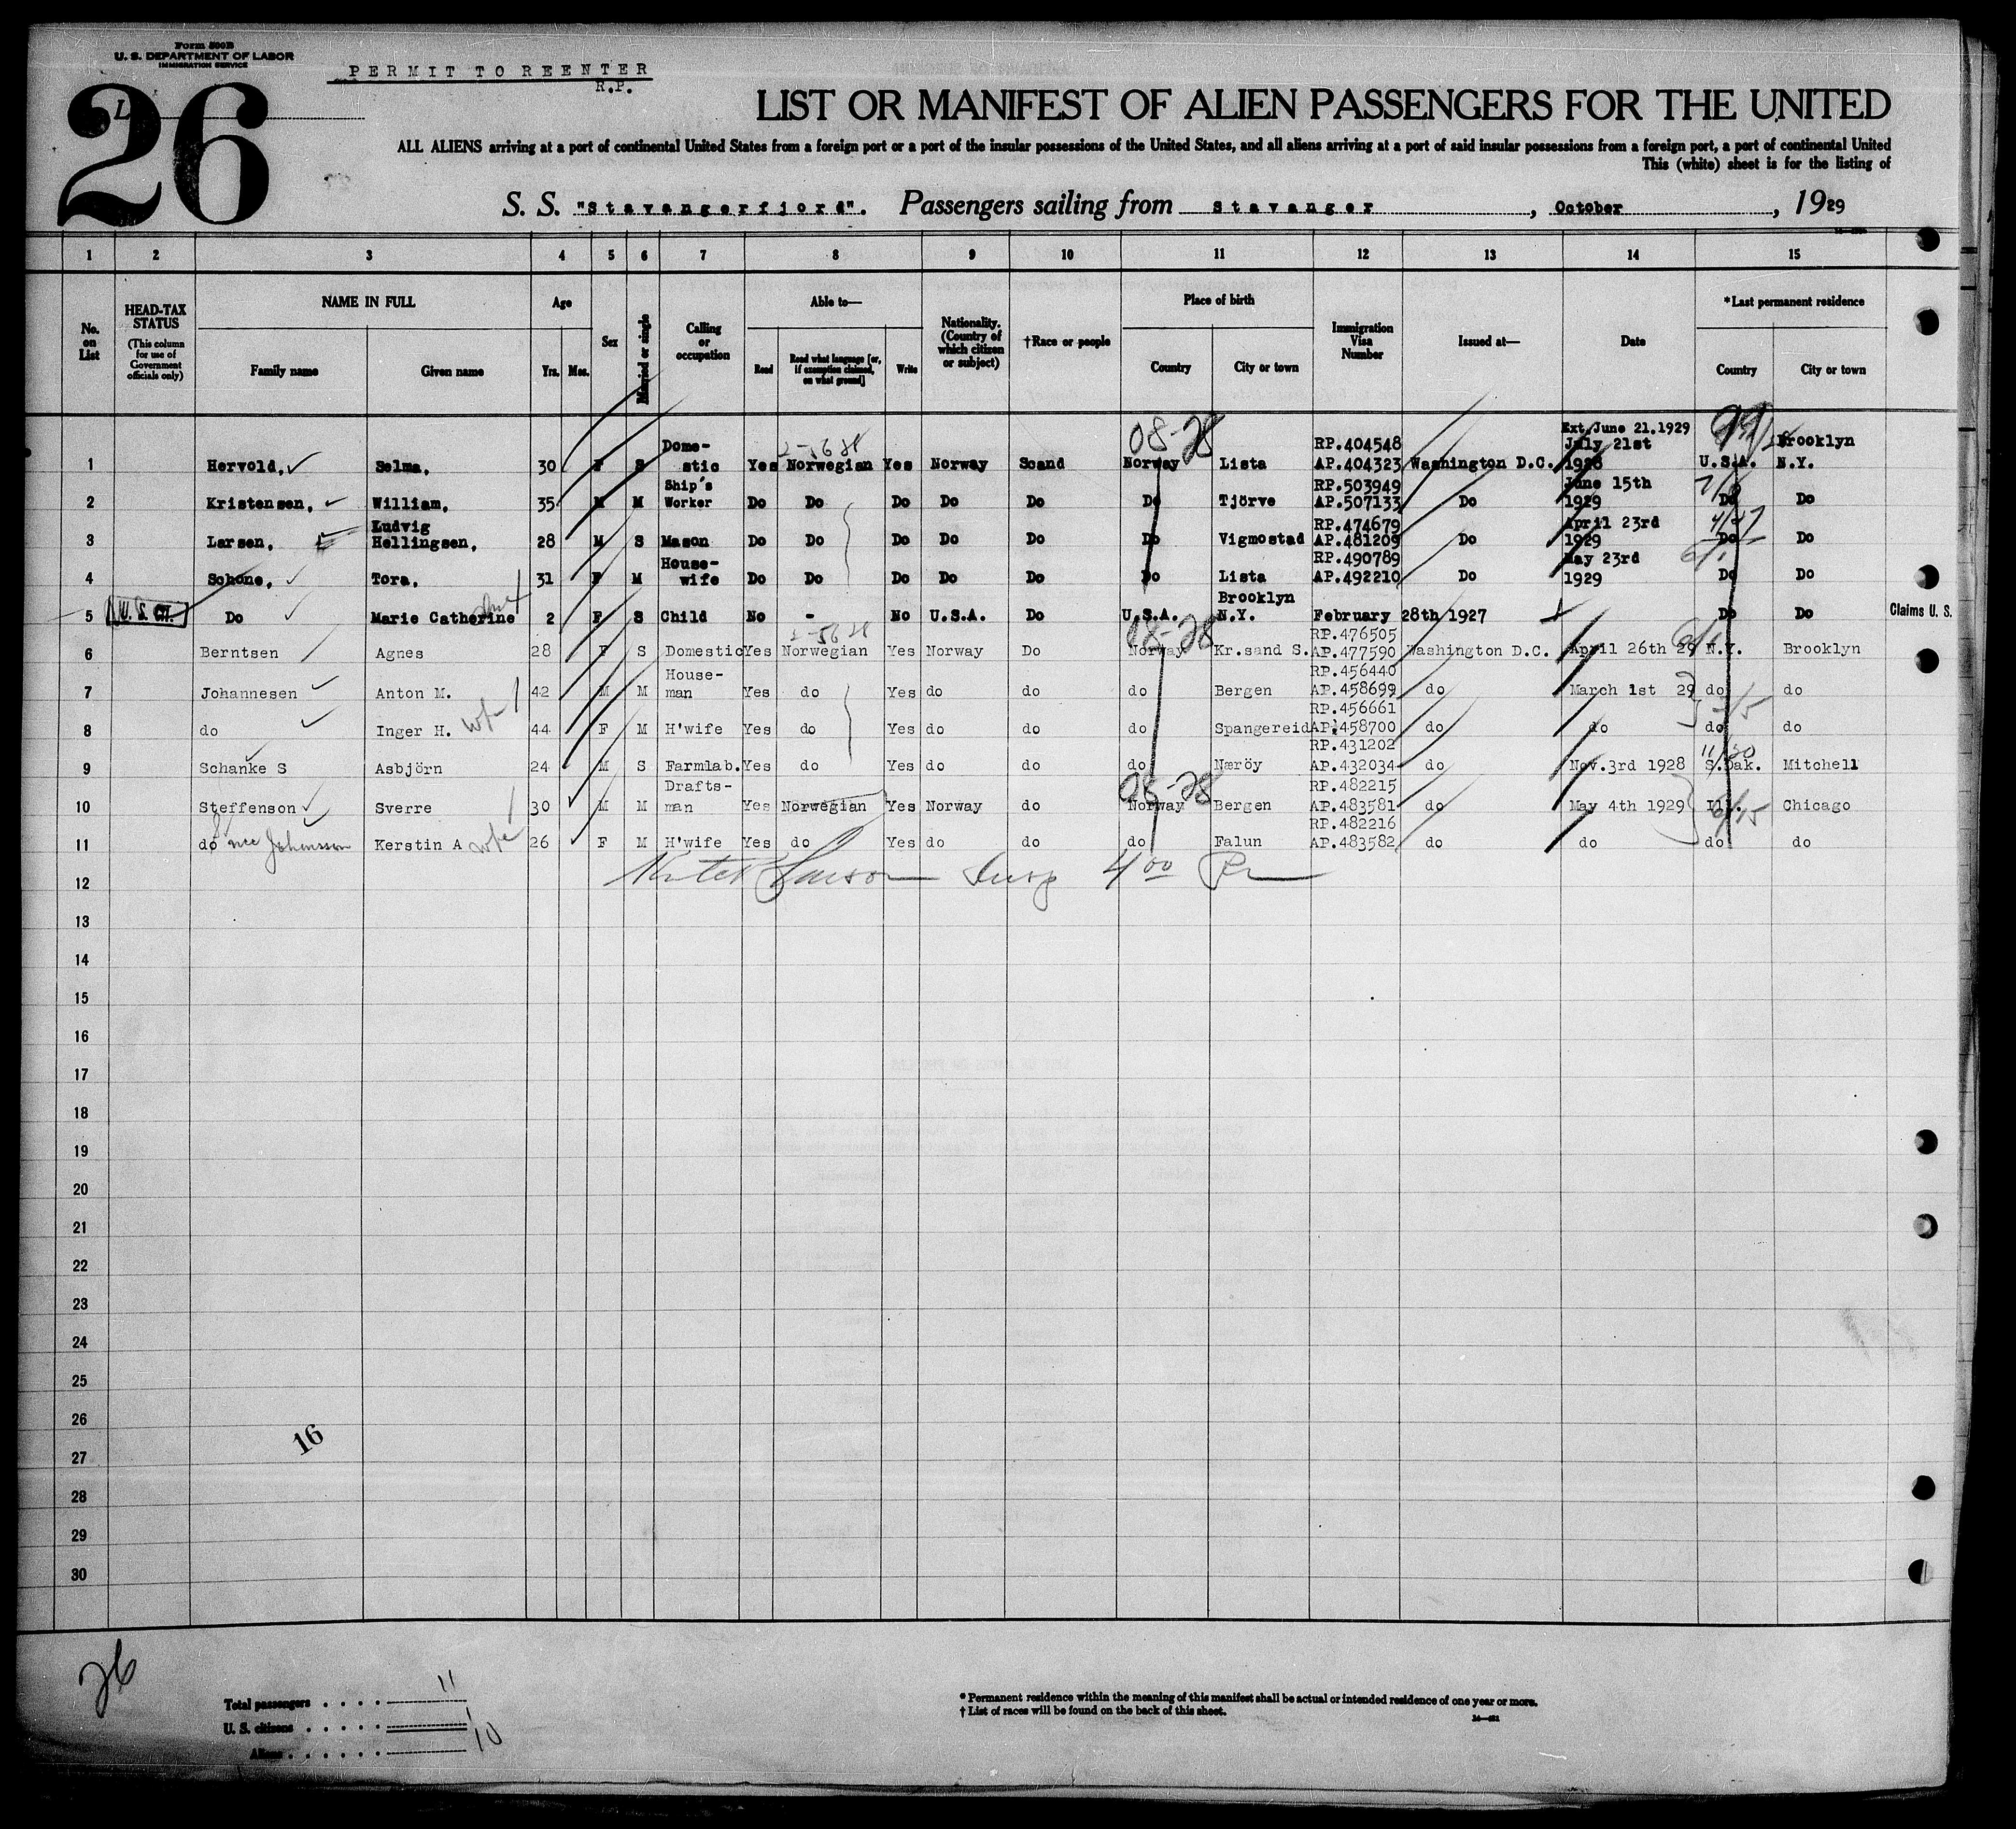 Form 500B
U. S. DEPARTMENT OF LABOR
IMMIGRATION SERVICE
PERMIT TO REENTER
R.P.
26
LIST OR MANIFEST OF ALIEN PASSENGERS FOR THE UNITED
ALL ALIENS arriving at a port of continental United States from a foreign port or a port of the insular possessions of the United States, and all aliens arriving at a port of said insular possessions from a foreign port, a port of continental United
This (white) sheet is for the listing of
S. S. "Stavangerfjord". Passengers sailing from Stavanger, October, 1929
1 2 3 4 5 6 7 8 9 10 11 12 13 14 15
No. on List
HEAD-TAX STATUS
(This column for use of Government officials only)
NAME IN FULL
Family name Given name
Age
Yrs. Mos.
Sex
Married or single
Calling or occupation
Able to—
Read Read what language [or, if exemption claimed, on what ground] Write
Nationality. (Country of which citizen or subject)
†Race or people
Place of birth
Country City or town
Immigration Visa Number
Issued at—
Date
*Last permanent residence
Country City or town
08-28
Ext. June 21.1929
Dome- RP.404548 July 21st Brooklyn
1 Hervold, Selma, 30 F S stic Yes Norwegian Yes Norway Scand Norway Lista AP.404323 Washington D.C. 1928 U.S.A. N.Y.
Ship's RP.503949 June 15th
2 Kristensen, William, 35 M M Worker Do Do Do Do Do Do Tjörve AP.507133 Do 1929 Do Do
Ludvig RP.474679 April 23rd
3 Larsen, Hellingsen, 28 M S Mason Do Do Do Do Do Do Vigmostad AP.481209 Do 1929 Do Do
House- RP.490789 May 23rd
4 Schone, Tora, 31 F M wife Do Do Do Do Do Do Lista AP.492210 Do 1929 Do Do
Brooklyn
5 U. S. CIT. Do Marie Catherine 2 F S Child No - No U.S.A. Do U.S.A. N.Y. February 28th 1927 Do Do Claims U. S.
08-28
RP.476505
6 Berntsen Agnes 28 F S Domestic Yes Norwegian Yes Norway Do Norway Kr.sand S. AP.477590 Washington D.C. April 26th 29 N.Y. Brooklyn
House- RP.456440
7 Johannesen Anton M. 42 M M man Yes do Yes do do do Bergen AP.458699 do March 1st 29 do do
RP.456661
8 do Inger H. wife 44 F M H'wife Yes do Yes do do do Spangereid AP.458700 do do do do
RP.431202 11/30
9 Schanke S Asbjörn 24 M S Farmlab. Yes do Yes do do do Næröy AP.432034 do Nov.3rd 1928 S.Dak. Mitchell
08-28
Drafts- RP.482215
10 Steffenson Sverre 30 M M man Yes Norwegian Yes Norway do Norway Bergen AP.483581 do May 4th 1929 Ill. Chicago
RP.482216
11 do nee Johansson Kerstin A wife 26 F M H'wife Yes do Yes do do do Falun AP.483582 do do do do
12 4 00
13
14
15
16
17
18
19
20
21
22
23
24
25
26
16
27
28
29
30
26
Total passengers . . . . 11
U. S. citizens . . . . . 1
Aliens . . . . . . 10
* Permanent residence within the meaning of this manifest shall be actual or intended residence of one year or more.
† List of races will be found on the back of this sheet.